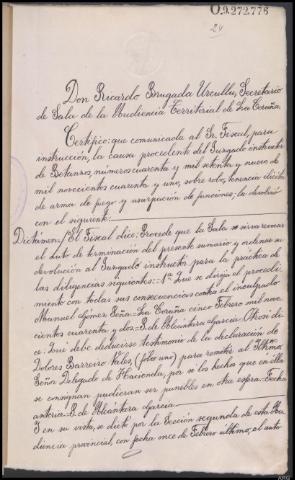 O.9.272.776
24
Don Ricardo Brugada Ureullu, Secretario
de Sala de la Audiencia Territorial de La Coruña
Certifico: que comunicada al Sr. Fiscal, para
instrucción, la causa procedente del Juzgado instructor
de Betanzos, número cuarenta y mil setenta y nueve de
mil novecientos cuarenta y uno, sobre robo, tenencia ilícita
de arma de fuego y usurpación de funciones; la devolvió
con el siguiente:
Dictamen/ El Fiscal dice: Procede que la Sala se sirva revocar
el auto de terminación del presente sumario y ordenar su
devolución al Juzgado instructor para la práctica de
las diligencias siguientes: 1º Que se dirija el procedi-
miento con todas sus consecuencias contra el inculpado
Manuel Gómez Seña= La Coruña cinco Febrero mil nove-
cientos cuarenta y dos= B. de Alcántara García= Otrosí di-
ce: Que debe deducirse testimonio de la declaración de
Dolores Barreiro Veles, (folio uno) para remitir al Iltmo.
Señor Delegado de Hacienda, por si los hechos que en ella
se consignan pudieran ser punibles en otra esfera= Fecha
anterior= B. de Alcántara García
Y en su vista, se dictó por la Sección segunda de esta Au-
diencia provincial, con fecha once de Febrero último, el auto